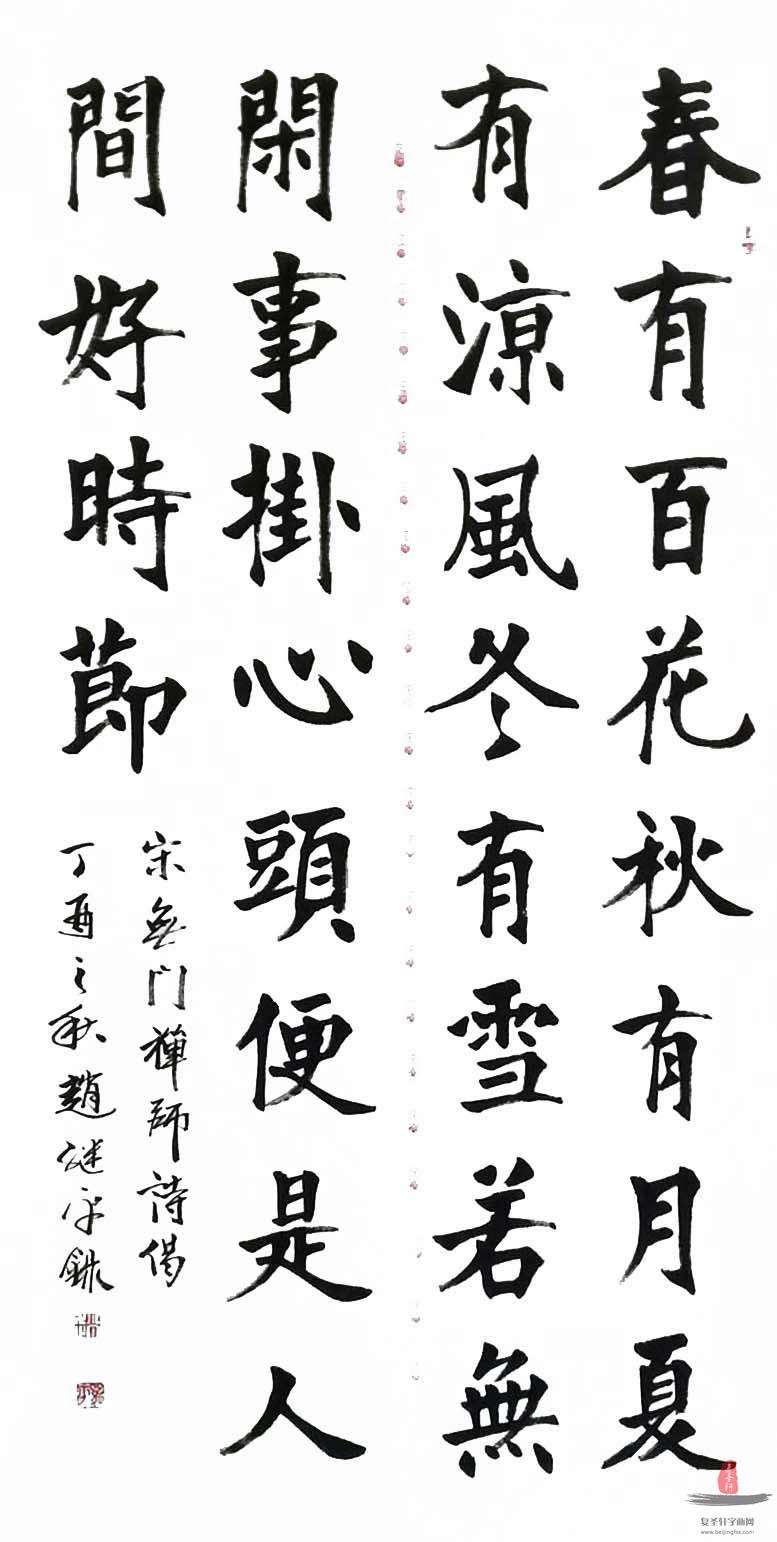 春有百花秋有月夏
有涼風冬有雪若無
閑事掛心頭便是人
間好時節
宋無門禪師詩偈
丁酉之秋趙謎平錄
复圣轩字画网
www.beijingfsx.com